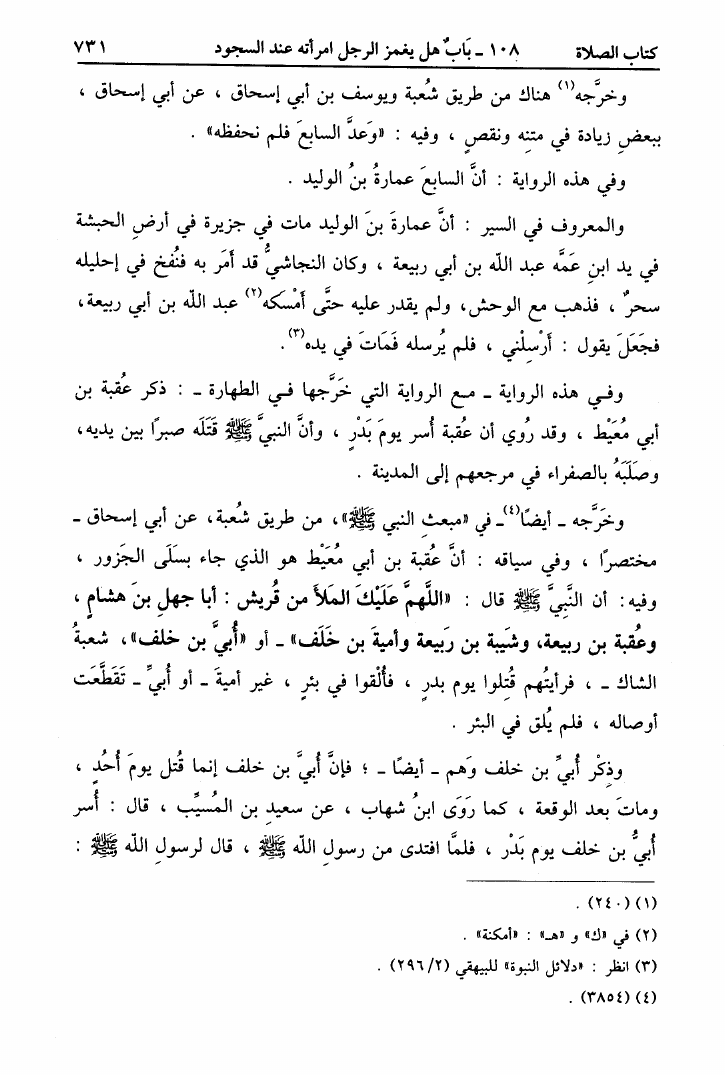 كتاب الصلاة ١٠٨ ـ بَابٌ هل يغمز الرجل امرأته عند السجود ٧٣١
وخرَّجه(١) هناك من طريق شُعبة ويوسف بن أبي إسحاق ، عن أبي إسحاق ،
ببعضِ زيادة في متنِه ونقصٍ ، وفيه : «وَعدَّ السابعَ فلم نحفظه» .
وفي هذه الرواية : أنَّ السابعَ عمارةُ بنُ الوليد .
والمعروف في السير : أنَّ عمارةَ بنَ الوليد مات في جزيرة في أرضِ الحبشة
في يد ابنِ عَمَّه عبد الله بن أبي ربيعة ، وكان النجاشيُّ قد أَمَر به فنُفخ في إحليله
سحرٌ ، فذهب مع الوحش، ولم يقدر عليه حتَّى أَمْسكه(٢) عبد الله بن أبي ربيعة،
فجَعَلَ يقول : أَرْسِلْني ، فلم يُرسله فَمَاتَ في يده(٣).
وفي هذه الرواية ـ مع الرواية التي خَرَّجها في الطهارة ـ : ذكر عُقبة بن
أبي مُعَيْط ، وقد رُوي أن عُقبة أُسر يومَ بَدْرٍ ، وأنَّ النبيَّ ﷺ قَتَلَه صبرًا بين يديه،
وصلَبَهُ بالصفراء في مرجعهم إلى المدينة .
وخَرَّجه ـ أيضًا(٤)ـ في «مبعثِ النبي ﷺ»، من طريق شُعبة، عن أبي إسحاق ـ
مختصرًا ، وفي سياقه : أنَّ عُقبة بن أبي مُعَيْط هو الذي جاء بسَلَى الجَزور ،
وفيه: أن النَّبيَّ ﷺ قال : «اللَّهمَّ عَلَيْكَ المَلأَ من قُريش : أبا جهلِ بنَ هشامٍ ،
وعُقبة بن ربيعة، وشَيبة بن رَبيعة وأميةَ بن خَلَف» ـ أو «أُبيَّ بن خلف»، شعبةُ
الشاك ـ ، فرأيتُهم قُتِلوا يوم بدرٍ ، فأُلْقوا في بئرٍ ، غير أميةَ ـ أو أُبيِّ ـ تَقَطَّعَت
أوصاله ، فلم يُلق في البئر .
وذِكْر أُبيِّ بن خلف وَهم ـ أيضًا ـ ؛ فإنَّ أُبيَّ بن خلف إنما قُتل يومَ أُحُدٍ ،
وماتَ بعد الوقعة ، كما رَوَى ابنُ شهاب ، عن سعيدِ بن المُسيِّب ، قال : أُسر
أُبيُّ بن خلف يوم بَدْر ، فلمَّا افتدى من رسولِ الله ﷺ ، قال لرسولِ الله ﷺ :
(١) (٢٤٠) .
(٢) في «ك» و «هـ» : «أمكنة» .
(٣) انظر : «دلائل النبوة» للبيهقي (٢٩٦/٢) .
(٤) (٣٨٥٤) .